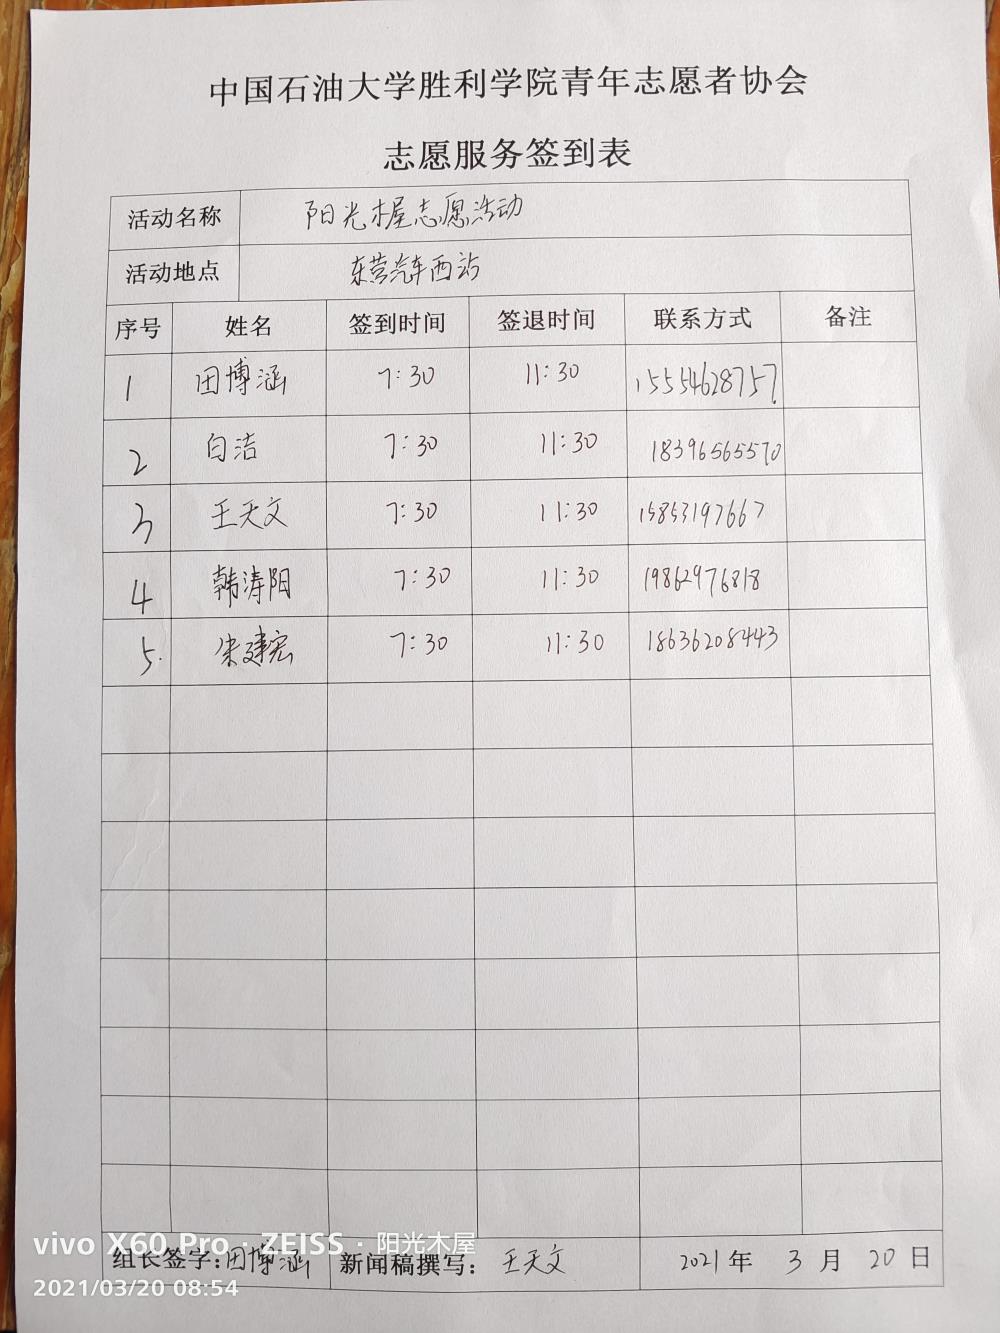 中国石油大学胜利学院青年志愿者协会
志愿服务签到表
活动名称 阳光木屋志愿活动
活动地点 东营汽车西站
序号 姓名 签到时间 签退时间 联系方式 备注
1 田博涵 7:30 11:30 15554628757
2 白洁 7:30 11:30 18396565570
3 王天文 7:30 11:30 15853197667
4 韩涛阳 7:30 11:30 19862976818
5. 朱建宏 7:30 11:30 18636208443
组长签字:田博涵 新闻稿撰写: 王天文 2021年 3月 20日
vivo X60 Pro · ZEISS · 阳光木屋
2021/03/20 08:54